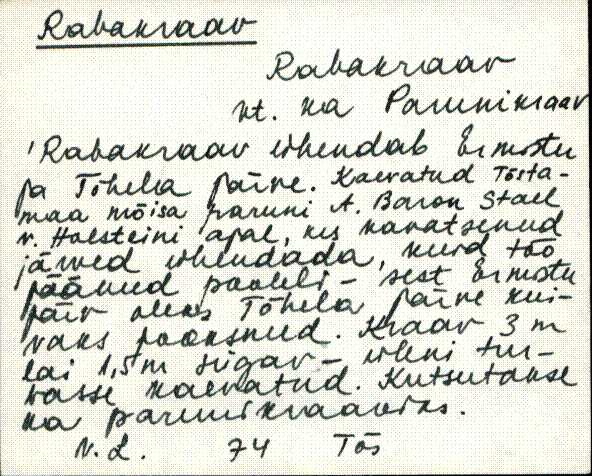 Rabakraav
Rabakraav
vt. ka Parunikraav
'Rabakraav ühendab Ermistu
ja Tõhela järve. Kaevatud Tõsta-
maa mõisa paruni A. Baron Stael
v. Holsteini ajal, kes kavatsenud
järved ühendada, kuid töö
jäänud pooleli - sest Ermistu
järv oleks Tõhela järve kui-
vaks jooksnud. Kraav 3 m
lai 1,5 m sügav - üleni tur-
basse kaevatud. Kutsutakse
ka parunikraaviks.
V. L. 74 Tõs